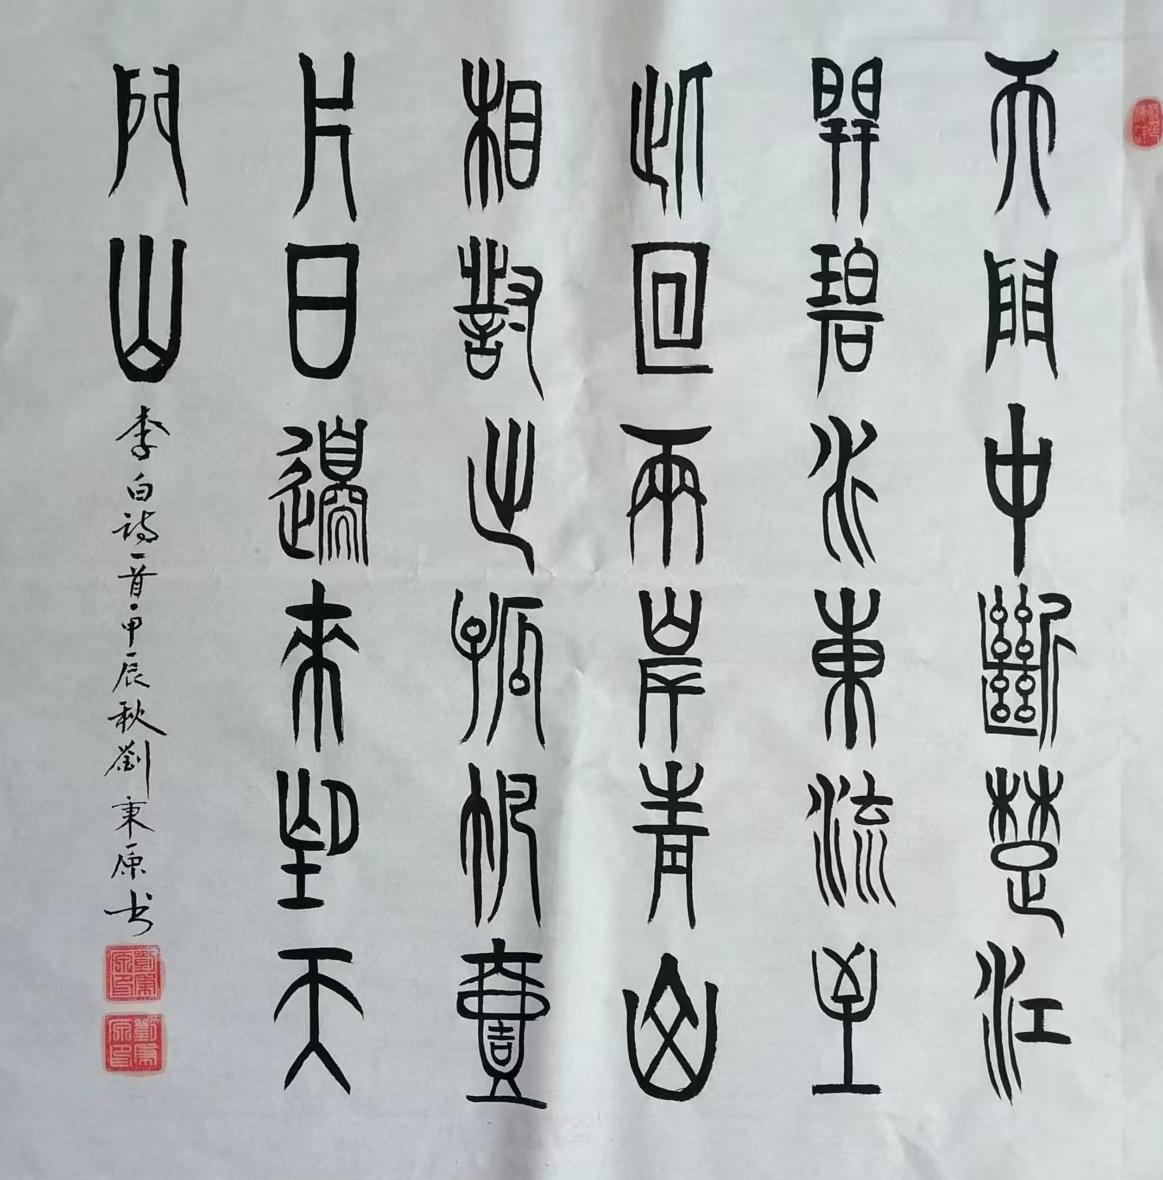 天門中斷楚江
開碧水東流至
此回兩岸青山
相對出孤帆壹
片日邊來望天
門山
李白诗一首·甲辰秋劉秉原书